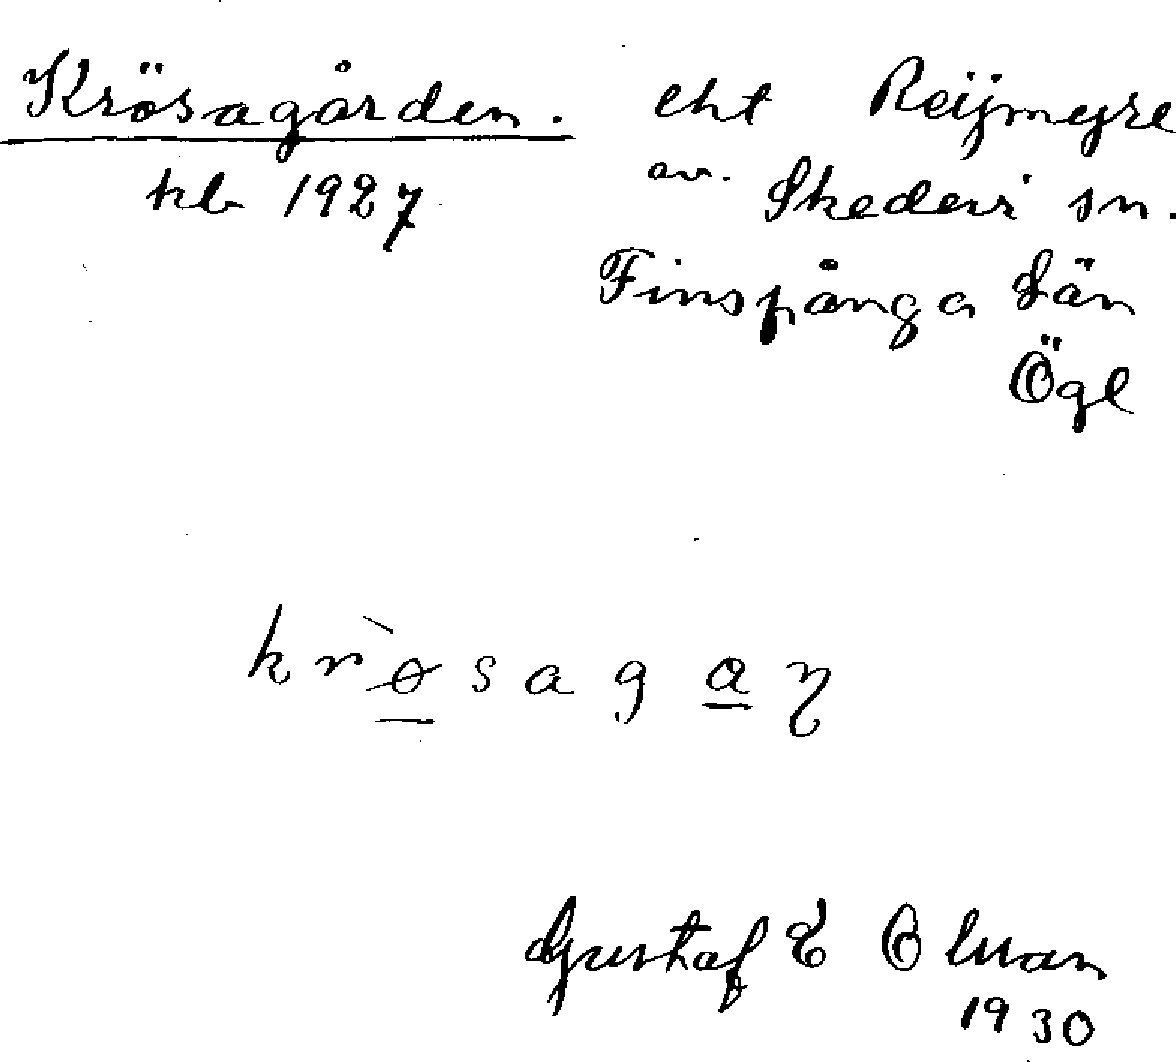 Krösagården. eht Reijmyre
kb 1927 av. Skedevi sn.
Finspånga län
Ögl
krøsagaɳ
Gustaf E Olsson
1930